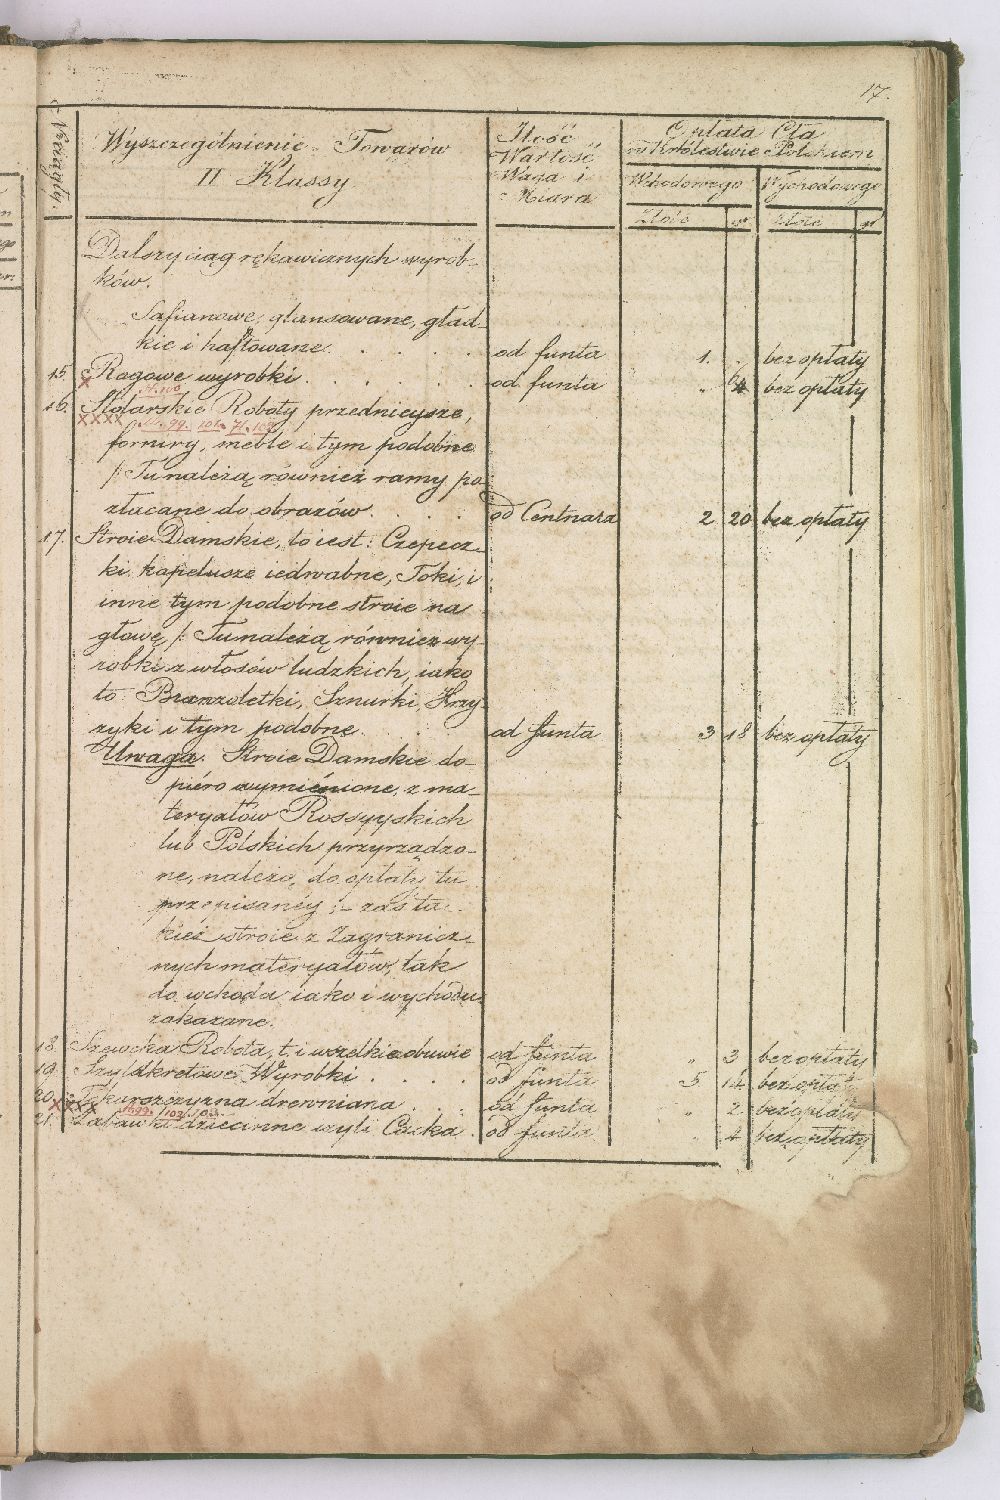 17.
Wyszczególnienie Towarów
II Klassy
Ilość
Wartość
Waga i
Miara
Opłata Cła
w Królestwie Polskiem
Wchodowego Wychodowego
Złote gr Złote gr
Dalszy ciąg rękawicznych wyrob-
ków.
Safianowe, glansowane, gład-
kie i haftowane . . . . . od funta 1. . bez opłaty
15. Rogowe wyrobki . . . . . . od funta „ bez opłaty
16. Stolarskie Roboty przednieysze,
xxxx 99. 101. 71. 102.
forniry, meble i tym podobne
/: Tu należą również ramy po
złacane do obrazów . . . . od Centnara 2 20 bez opłaty
17. Stroie Damskie, to iest: Czepecz-
ki, kapelusze iedwabne, Toki, i
inne tym podobne stroie na
głowę, /: Tu należą również wy-
robki z włosów ludzkich, iako
to Branzoletki, Sznurki, Krzy-
żyki i tym podobne . . . . od funta 3 18 bez opłaty
Uwaga. Stroie Damskie do-
piéro wymiénione, z ma-
teryałów Rossyyskich
lub Polskich przyrządzo-
ne, należą do opłaty tu
przepisanéy ;- zaś ta-
kież stroie z Zagranicz-
nych materyałów, tak
do wchodu iako i wychodu,
zakazane.
18. Szewcka Robota, t. i wszelkie obuwie od funta „ 3 bez opłaty
19. Szyldkretowe Wyrobki . . . . od funta 5 14 bez opłaty
20. Tokarszczyzna drewniana . . . od funta „ 2 bez opłaty
xxxx 102. 103.
21. Zabawki dziecinne czyli Cacka . od funta „ 4 bez opłaty